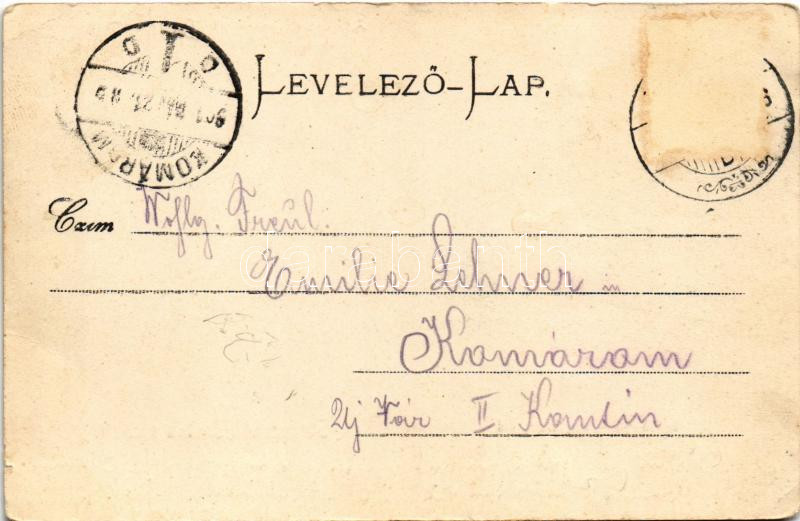 LEVELEZŐ-LAP.
KOMÁROM
Czim Wohlg. Freul.
Emilie Lehner in
Komárom
Uj Vár II Kantin
darabanth